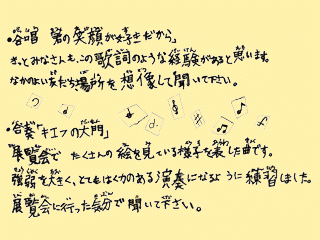 ・合唱「君の笑顔が好きだから」
きっとみなさんも、この歌詞のような経験があると思います。
なかのよい友だち場所を想像して聞いて下さい。
・合奏「キエフの大門」
展覧会でたくさんの絵を見ている様子を表した曲です。
強弱を大きく、とてもはく力のある演奏になるように練習しました。
展覧会に行った気分で聞いて下さい。